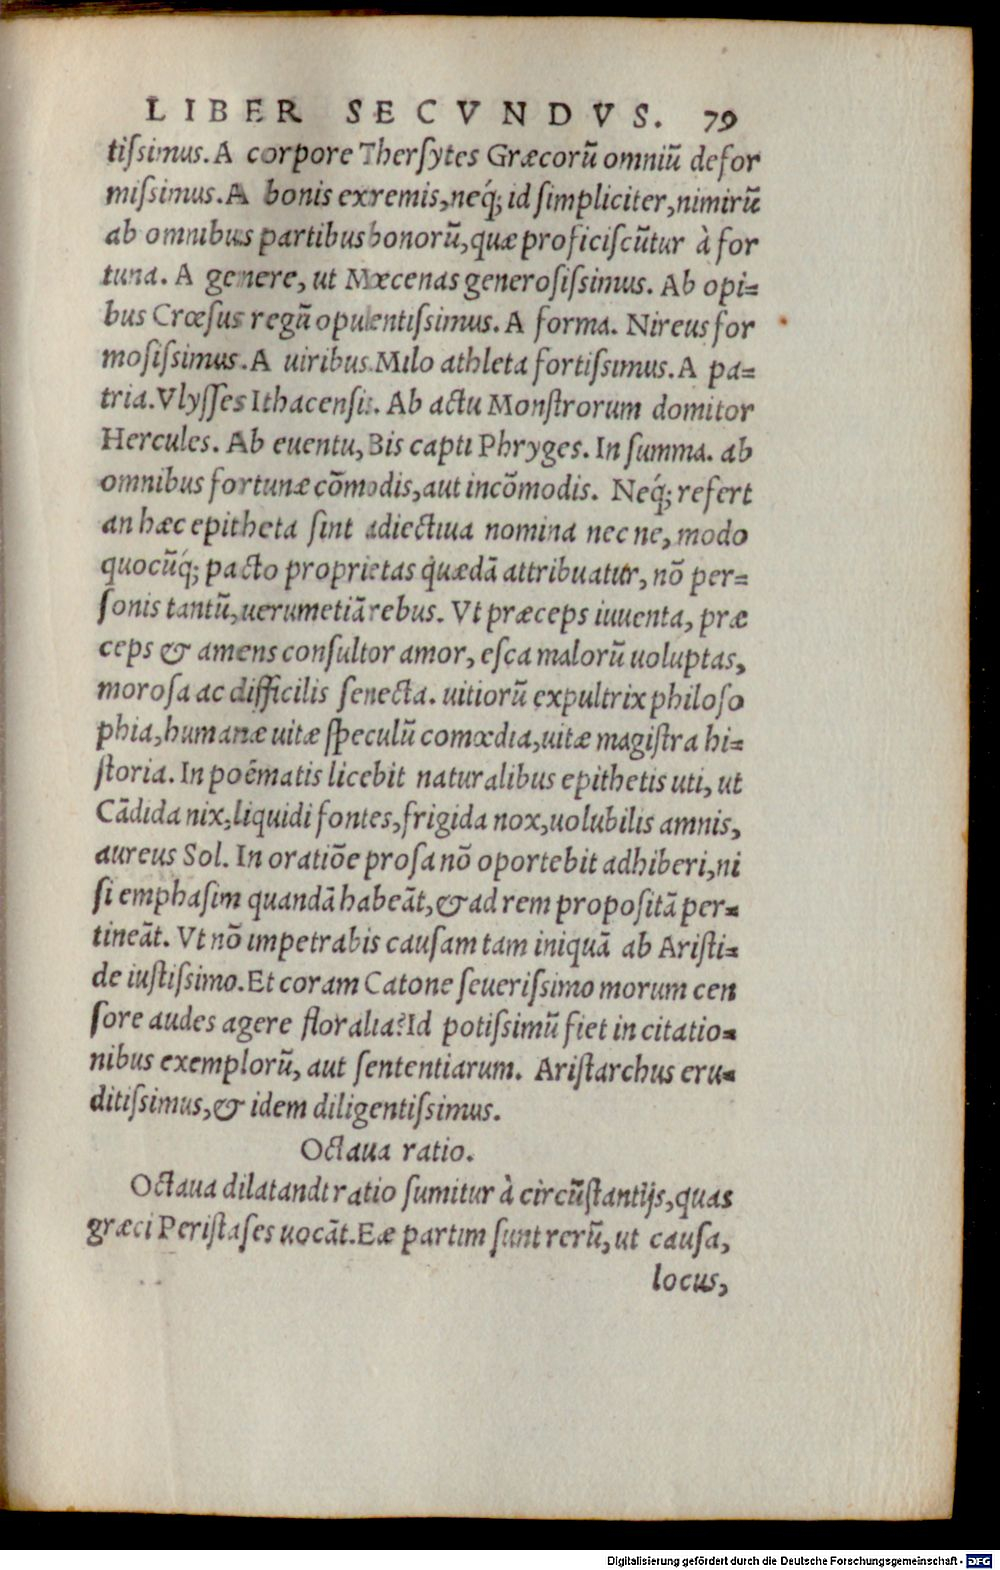 LIBER SECVNDVS. 79
tiſsimus. A corpore Therſytes Græcorũ omniũ defor
miſsimus. A bonis exremis, neq́; id ſimpliciter, nimirũ
ab omnibus partibus bonorũ, quæ proficiſcũtur à for
tuna. A genere, ut Mæcenas generoſiſsimus. Ab opi=
bus Crœſus regũ opulentiſsimus. A forma. Nireus for
moſiſsimus. A uiribus Milo athleta fortiſsimus. A pa=
tria. Vlyſſes Ithacenſis. Ab actu Monſtrorum domitor
Hercules. Ab euentu, Bis capti Phryges. In ſumma. ab
omnibus fortunæ cõmodis, aut incõmodis. Neq́; refert
an hæc epitheta ſint adiectiua nomina nec ne, modo
quocũq́; pacto proprietas quædã attribuatur, nõ per=
ſonis tantũ, uerumetiã rebus. Vt præceps iuuenta, præ
ceps & amens conſultor amor, eſca malorũ uoluptas,
moroſa ac difficilis ſenecta. uitiorũ expultrix philoſo
phia, humanæ uitæ ſpeculũ comœdia, uitæ magiſtra hi=
ſtoria. In poëmatis licebit naturalibus epithetis uti, ut
Cãdida nix, liquidi fontes, frigida nox, uolubilis amnis,
aureus Sol. In oratiõe proſa nõ oportebit adhiberi, ni
ſi emphaſim quandã habeãt, & ad rem propoſitã per=
tineãt. Vt nõ impetrabis cauſam tam iniquã ab Ariſti=
de iuſtiſsimo. Et coram Catone ſeueriſsimo morum cen
ſore audes agere floralia? Id potiſsimũ fiet in citatio=
nibus exemplorũ, aut ſententiarum. Ariſtarchus eru=
ditiſsimus, & idem diligentiſsimus.
Octaua ratio.
Octaua dilatandi ratio ſumitur à circũſtantijs, quas
græci Periſtaſes uocãt. Eæ partim ſunt rerũ, ut cauſa,
locus,
Digitalisierung gefördert durch die Deutsche Forschungsgemeinschaft - DFG